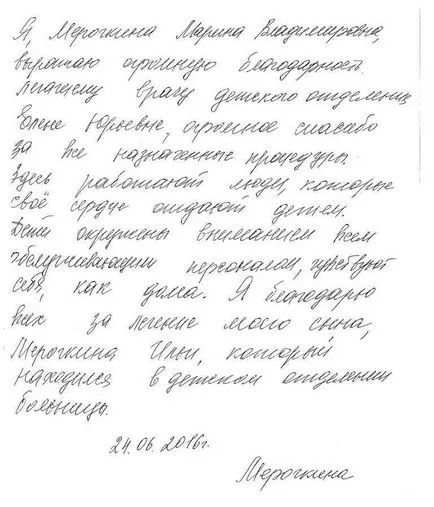 Я, Мерочкина Марина Владимировна,
выражаю огромную благодарность
лечащему врачу детского отделения
Елене Юрьевне, огромное спасибо
за все назначенные процедуры.
Здесь работают люди, которые
своё сердце отдают детям.
Дети окружены вниманием всем
обслуживающим персоналом, чувствуют
себя, как дома. Я благодарю
всех за лечение моего сына,
Мерочкина Ильи, который
находился в детском отделении
больницы.
24.06.2016г.
Мерочкина